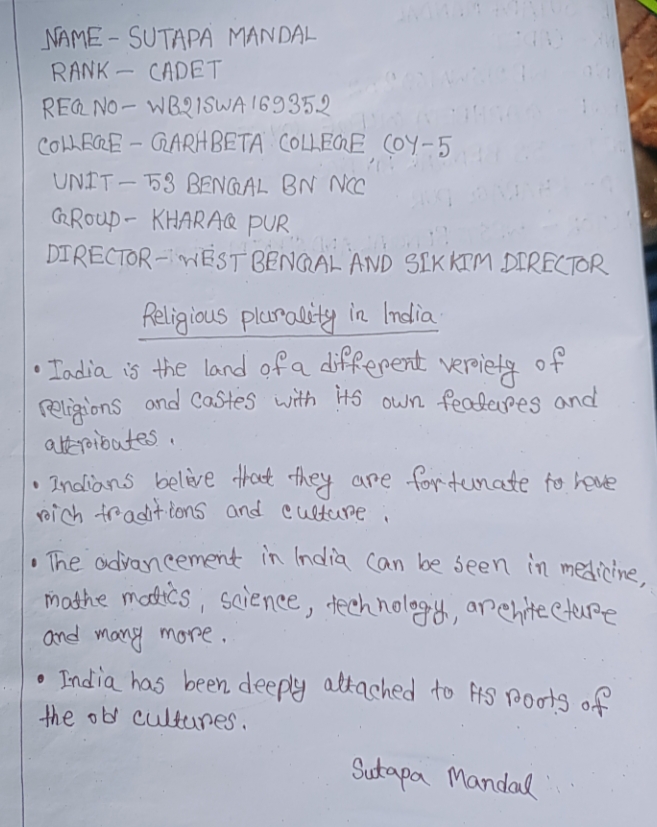 NAME - SUTAPA MANDAL
RANK - CADET
REG NO - WB21SWA169352
COLLEGE - GARHBETA COLLEGE, COY-5
UNIT - 53 BENGAL BN NCC
GROUP - KHARAG PUR
DIRECTOR - WEST BENGAL AND SIKKIM DIRECTOR
Religious plurality in India
• India is the land of a different veriety of
religions and castes with its own features and
attributes.
• Indians belive that they are fortunate to have
rich traditions and culture.
• The advancement in India can be seen in medicine,
mathe matics, science, technology, architecture
and many more.
• India has been deeply attached to its roots of
the old cultures.
Sutapa Mandal